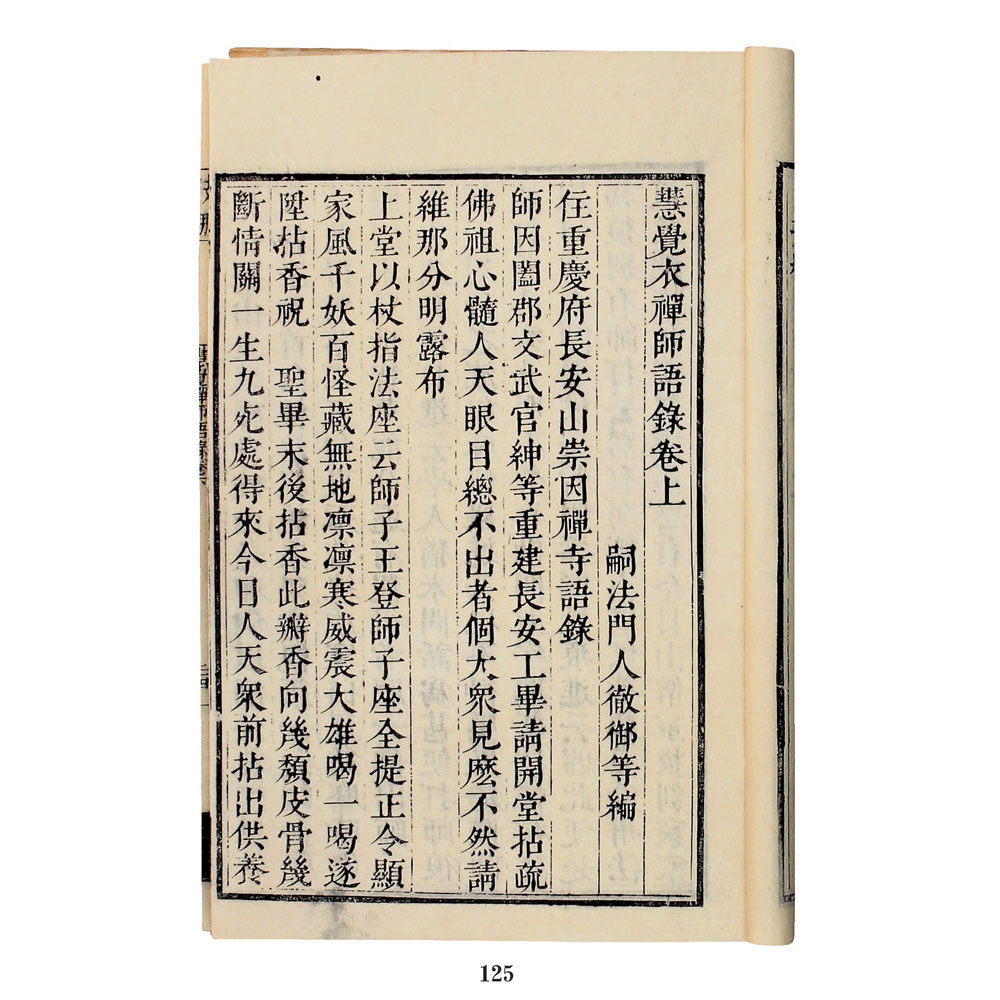 慧覺衣禪師語錄卷上
嗣法門人徹御等編
住重慶府長安山崇因禪寺語錄
師因闔郡文武官紳等重建長安工畢請開堂拈疏
佛祖心髓人天眼目總不出者個大衆見麽不然請
維那分明露布
上堂以杖指法座云師子王登師子座全提正令顯
家風千妖百怪藏無地凛凛寒威震大雄喝一喝遂
陞拈香祝 聖畢末後拈香此瓣香向幾頹皮骨幾
斷情關一生九死處得來今日人天衆前拈出供養
125